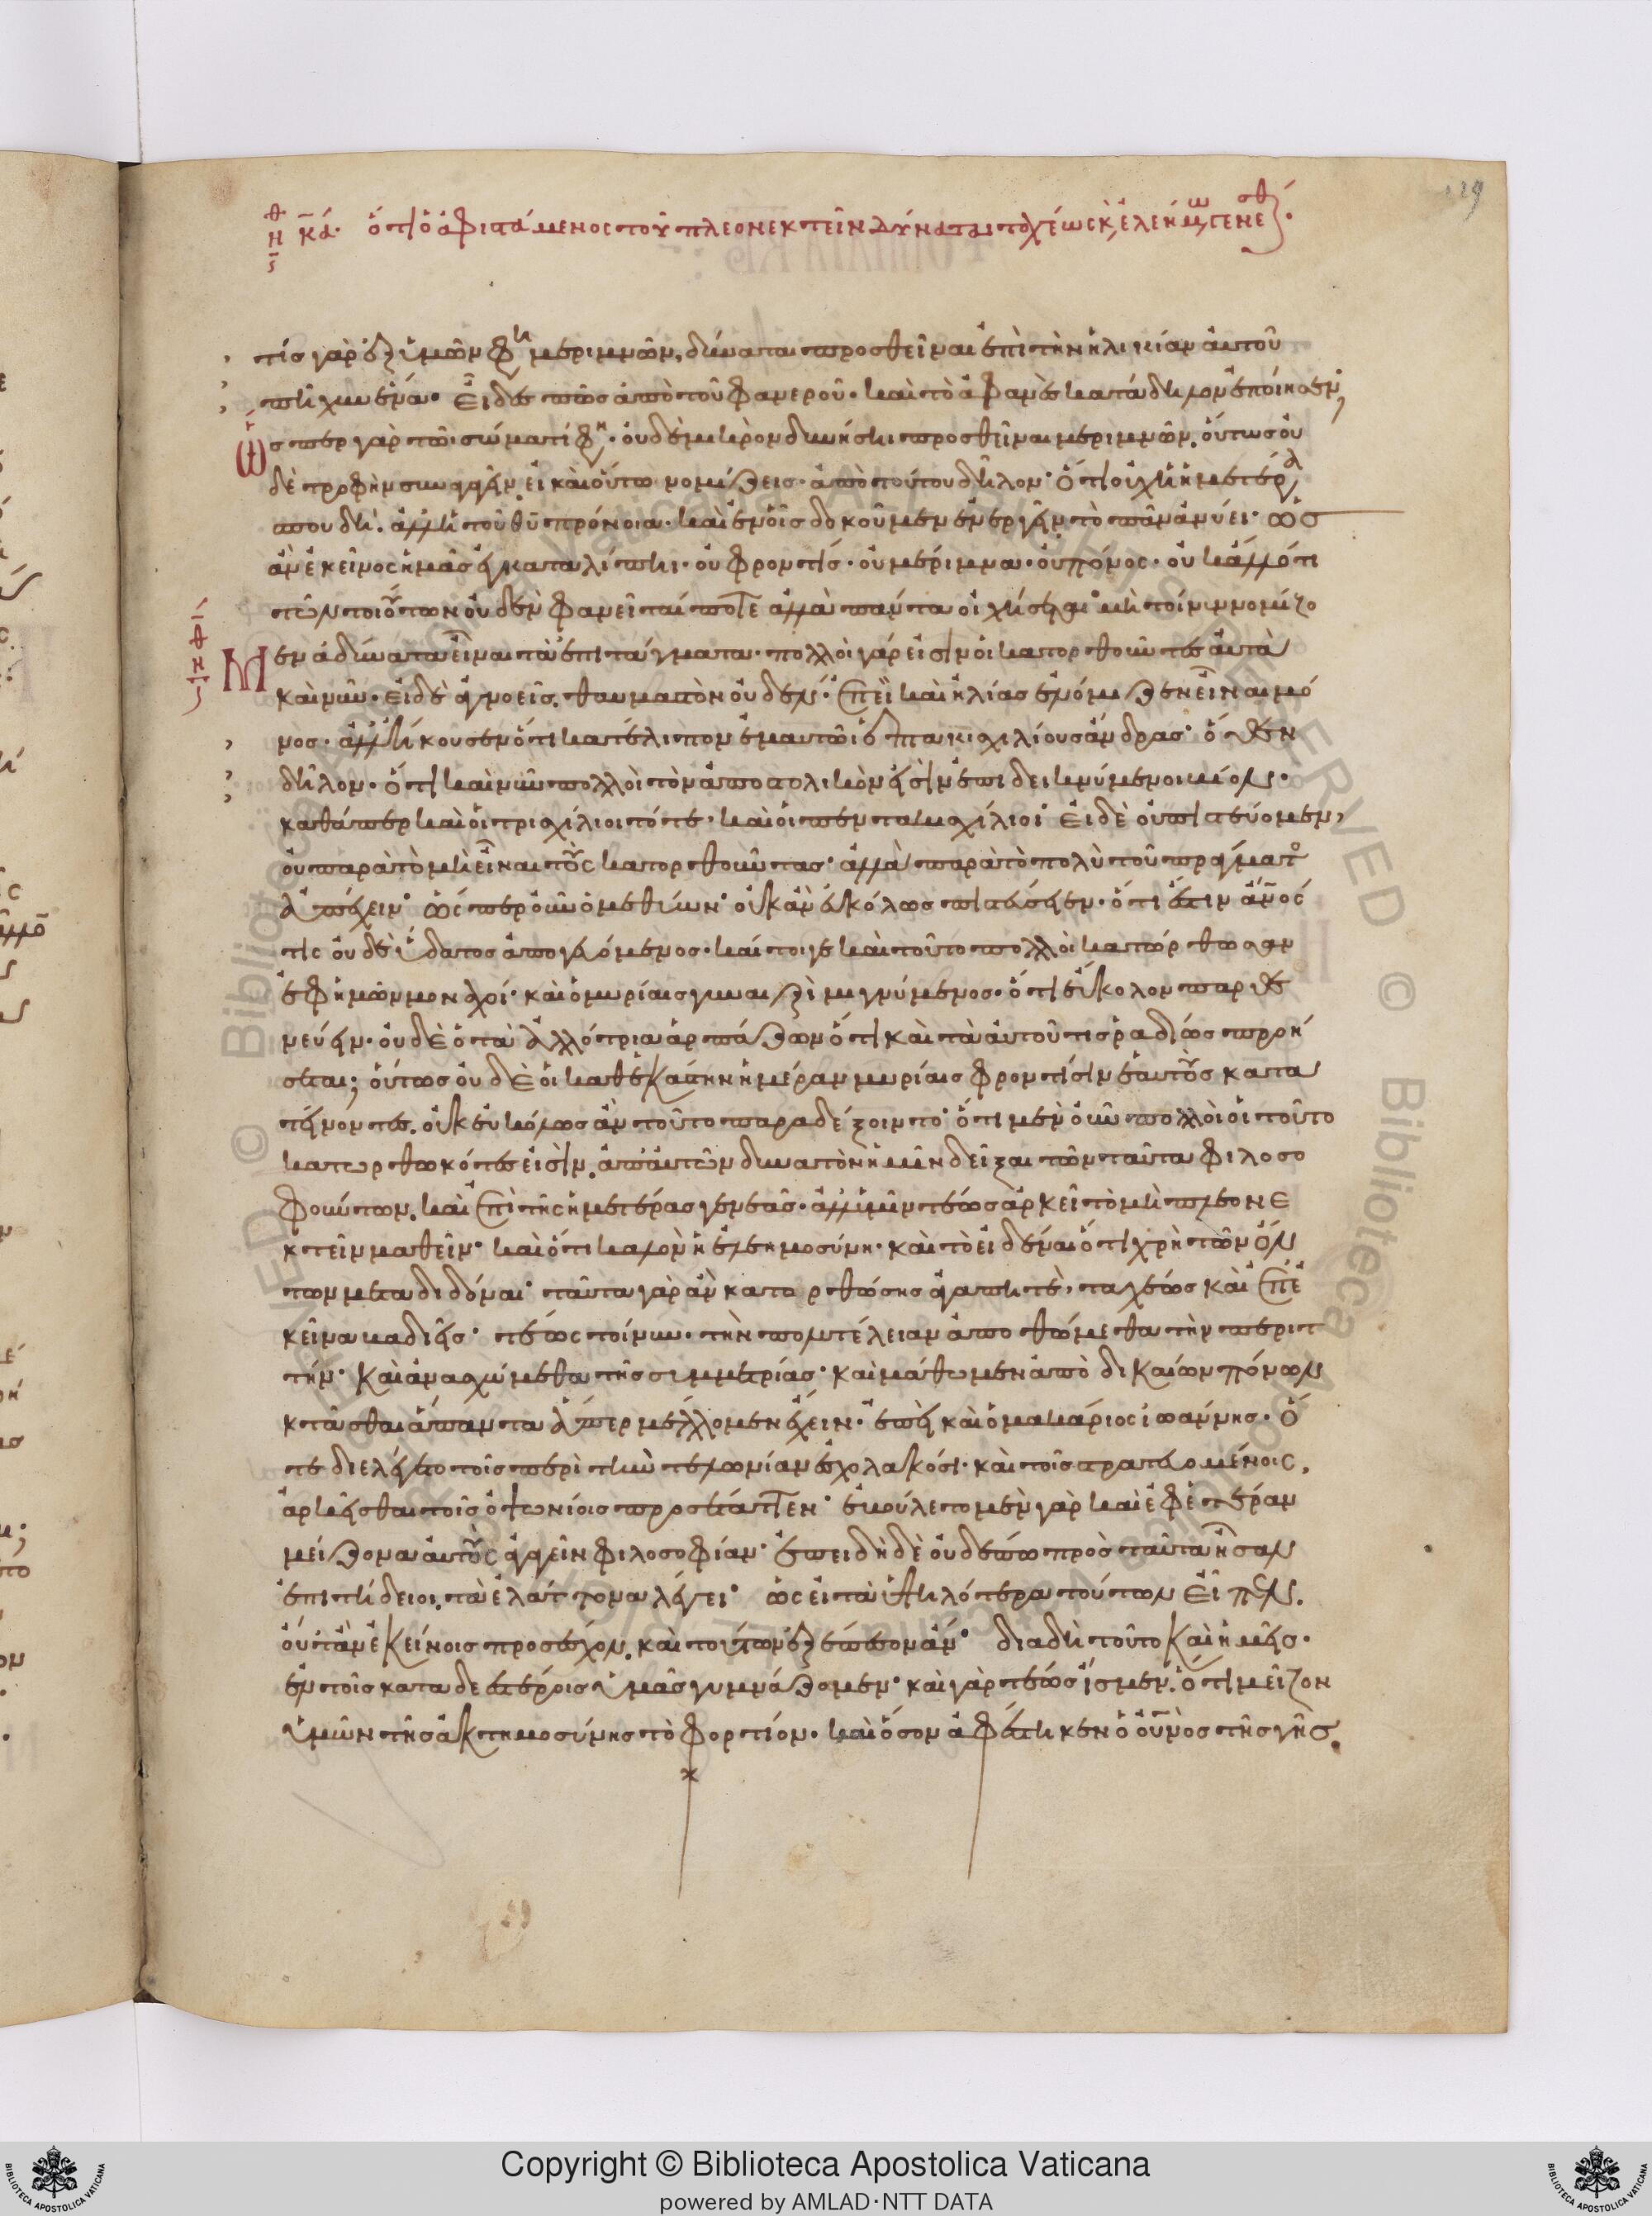 ἠθ κα· ὅτι ὁ ἀφιστάμενος τοῦ πλεονεκτεῖν δύναται ταχέως κ, ἐλεήμων γενέσθ·
τίς γὰρ ἐξ ὑμῶν φη μεριμνῶν, δύναται προσθεῖναι ἐπὶ τὴν ἡλικίαν αὐτοῦ
πῆχυν ἕνα· εἶδες πῶς ἀπὸ τοῦ φανεροῦ· καὶ τὸ ἀφανὲς κατάδηλον ἐποίησεν·
ὥσπερ γὰρ τῶ σώματί φη· οὐδὲ μικρὸν δυνήσῃ προσθεῖναι μεριμνῶν, οὕτως οὐ
δὲ τροφὴν συναγαγεῖν, εἰ καὶ οὕτω νομίζεις· ἀπὸ τούτου δῆλον· ὅτι οὐχ ἡ ἡμετέρα
σπουδὴ· ἀλλ' ἡ τοῦ θῦ πρόνοια· καὶ ἐν οἷς δοκοῦμεν ἐνεργεῖν τὸ πᾶν ἀνύει· ὡς
ἂν ἐκεῖνος ἡμᾶς ἐγκαταλίπῃ· οὐ φροντίς· οὐ μέριμνα· οὐ πόνος· οὐκ ἄλλό τι
τῶν τοιούτων οὐδὲν φανεῖταί ποτε ἀλλὰ πάντα οἰχήσεται· μὴ τοίνυν νομίζο
μεν ἀδύνατα εἶναι τὰ ἐπιτάγματα· πολλοὶ γάρ εἰσιν οἱ κατορθοῦντες αὐτὰ
καὶ νῦν· εἰ δὲ ἀγνοεῖς, θαυμαστὸν οὐδέν· ἐπεὶ καὶ ἡλίας ἐνόμιζεν εἶναι μό
νος· ἀλλ' ἤκουσεν ὅτι κατέλιπον ἐμαυτῶ ἑπτακισχιλίους ἄνδρας· ὅθεν
δῆλον· ὅτι καὶ νῦν πολλοὶ τὸν ἀποστολικὸν εἰσὶν ἐπιδεικνύμενοι βίον·
καθάπερ καὶ οἱ τρισχίλιοι τότε· καὶ οἱ πεντακισχίλιοι· εἰ δὲ οὐ πιστεύομεν,
οὐ παρὰ τὸ μὴ εἶναι τοὺς κατορθοῦντας· ἀλλὰ παρὰ τὸ πολὺ τοῦ πράγματος
ἀπέχειν· ὥσπερ οὖν ὁ μεθύων· οὐκ ἂν εὐκόλως πιστεύσειεν· ὅτι ἔστιν ἄνος
τις οὐδὲ ὕδατος ἀπογευόμενος· καί τοι γε καὶ τοῦτο πολλοὶ κατώρθωσαν
ἐφ' ἡμῶν μοναχοί· καὶ ὁ μυρίαις γυναιξὶ μιγνύμενος· ὅτι εὔκολον παρθε
νεύειν· οὐδὲ ὁ τὰ ἀλλότρια ἁρπάζων ὅτι καὶ τὰ αὑτοῦ τις ῥαδίως προή
σεται; οὕτως οὐδὲ οἱ καθ' ἑκάστην ἡμέραν μυρίαις φροντίσιν ἑαυτοὺς κατα
τείνοντες. οὐκ εὐκόλως ἂν τοῦτο παραδέξοιντο· ὅτι μὲν οὖν πολλοὶ οἱ τοῦτο
κατωρθωκότες εἰσὶν, ἀπ' αὐτῶν δυνατὸν ἡμῖν δεῖξαι τῶν ταῦτα φιλοσο
φούντων, καὶ ἐπὶ τῆς ἡμετέρας γενεᾶς· ἀλλ' ὑμῖν τέως ἀρκεῖ τὸ μὴ πλεονε
κτεῖν μαθεῖν· καὶ ὅτι καλὸν ἡ ἐλεημοσύνη· καὶ τὸ εἰδέναι ὅτι χρὴ τῶν ὄν
των μεταδιδόναι· ταῦτα γὰρ ἂν κατορθώσῃς ἀγαπητὲ, ταχέως καὶ ἐπ' ἐ
κεῖνα βαδιεῖς· τέως τοίνυν· τὴν πολυτέλειαν ἀποθώμεθα τὴν περιτ
τήν· καὶ ἀνασχώμεθα τῆς συμμετρίας· καὶ μάθωμεν ἀπὸ δικαίων πόνων
κτᾶσθαι ἅπαντα ἅπερ μέλλομεν ἔχειν· ἐπεὶ καὶ ὁ μακάριος ἰωάννης· ὅ
τε διελέγετο τοῖς περὶ τὴν τελωνίαν ἐσχολακόσι· καὶ τοῖς στρατευομένοις,
ἀρκεῖσθαι τοῖς ὀψωνίοις προσέταττεν· ἐβούλετο μὲν γὰρ καὶ ἐφ' ἑτέραν
μείζονα αὐτοὺς ἀγαγεῖν φιλοσοφίαν· ἐπειδὴ δὲ οὐδέπω πρὸς ταῦτα ἦσαν
ἐπιτήδειοι, τὰ ἐλάττονα λέγει· ὡς εἰ τὰ ὑψηλότερα τούτων εἶπεν.
οὔτ' ἂν ἐκείνοις προσέσχον, καὶ τούτων ἐξέπεσον ἄν· διὰ δὴ τοῦτο καὶ ἡμεῖς·
ἐν τοῖς καταδεεστέροις ὑμᾶς γυμνάζομεν· καὶ γὰρ τέως ἴσμεν, ὅτι μεῖζον
ὑμῶν τῆς ἀκτημοσύνης τὸ φορτίον· καὶ ὅσον ἀφέστηκεν ὁ οὐνὸς τῆς γῆς.
Copyright © Biblioteca Apostolica Vaticana
powered by AMLAD·NTT DATA